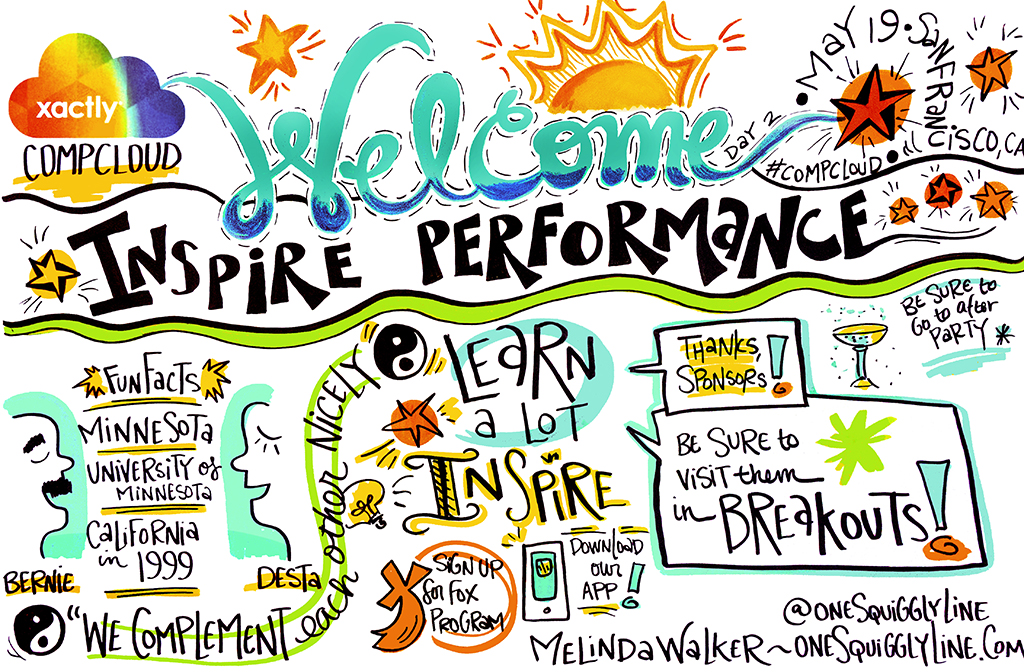 xactly
COMPCLOUD
Welcome
Day 2
• MAY 19 • SAN FRANCISCO, CA •
#COMPCLOUD
INSPIRE PERFORMANCE
FUN FACTS
MINNESOTA
UNIVERSITY of
MINNESOTA
CALIFORNIA
in 1999
BERNIE
DESTA
"WE COMPLEMENT each other NICELY
LEARN
a LOT
INSPIRE
SIGN UP
for FOX
PROGRAM
DOWNLOAD
our
APP!
THANKS,
SPONSORS!
BE SURE to
VISIT them
in BREAKOUTS!
BE SURE to
GO to after
PARTY *
@ONESQUIGGLYLINE
MELINDA WALKER ~ ONESQUIGGLYLINE.COM